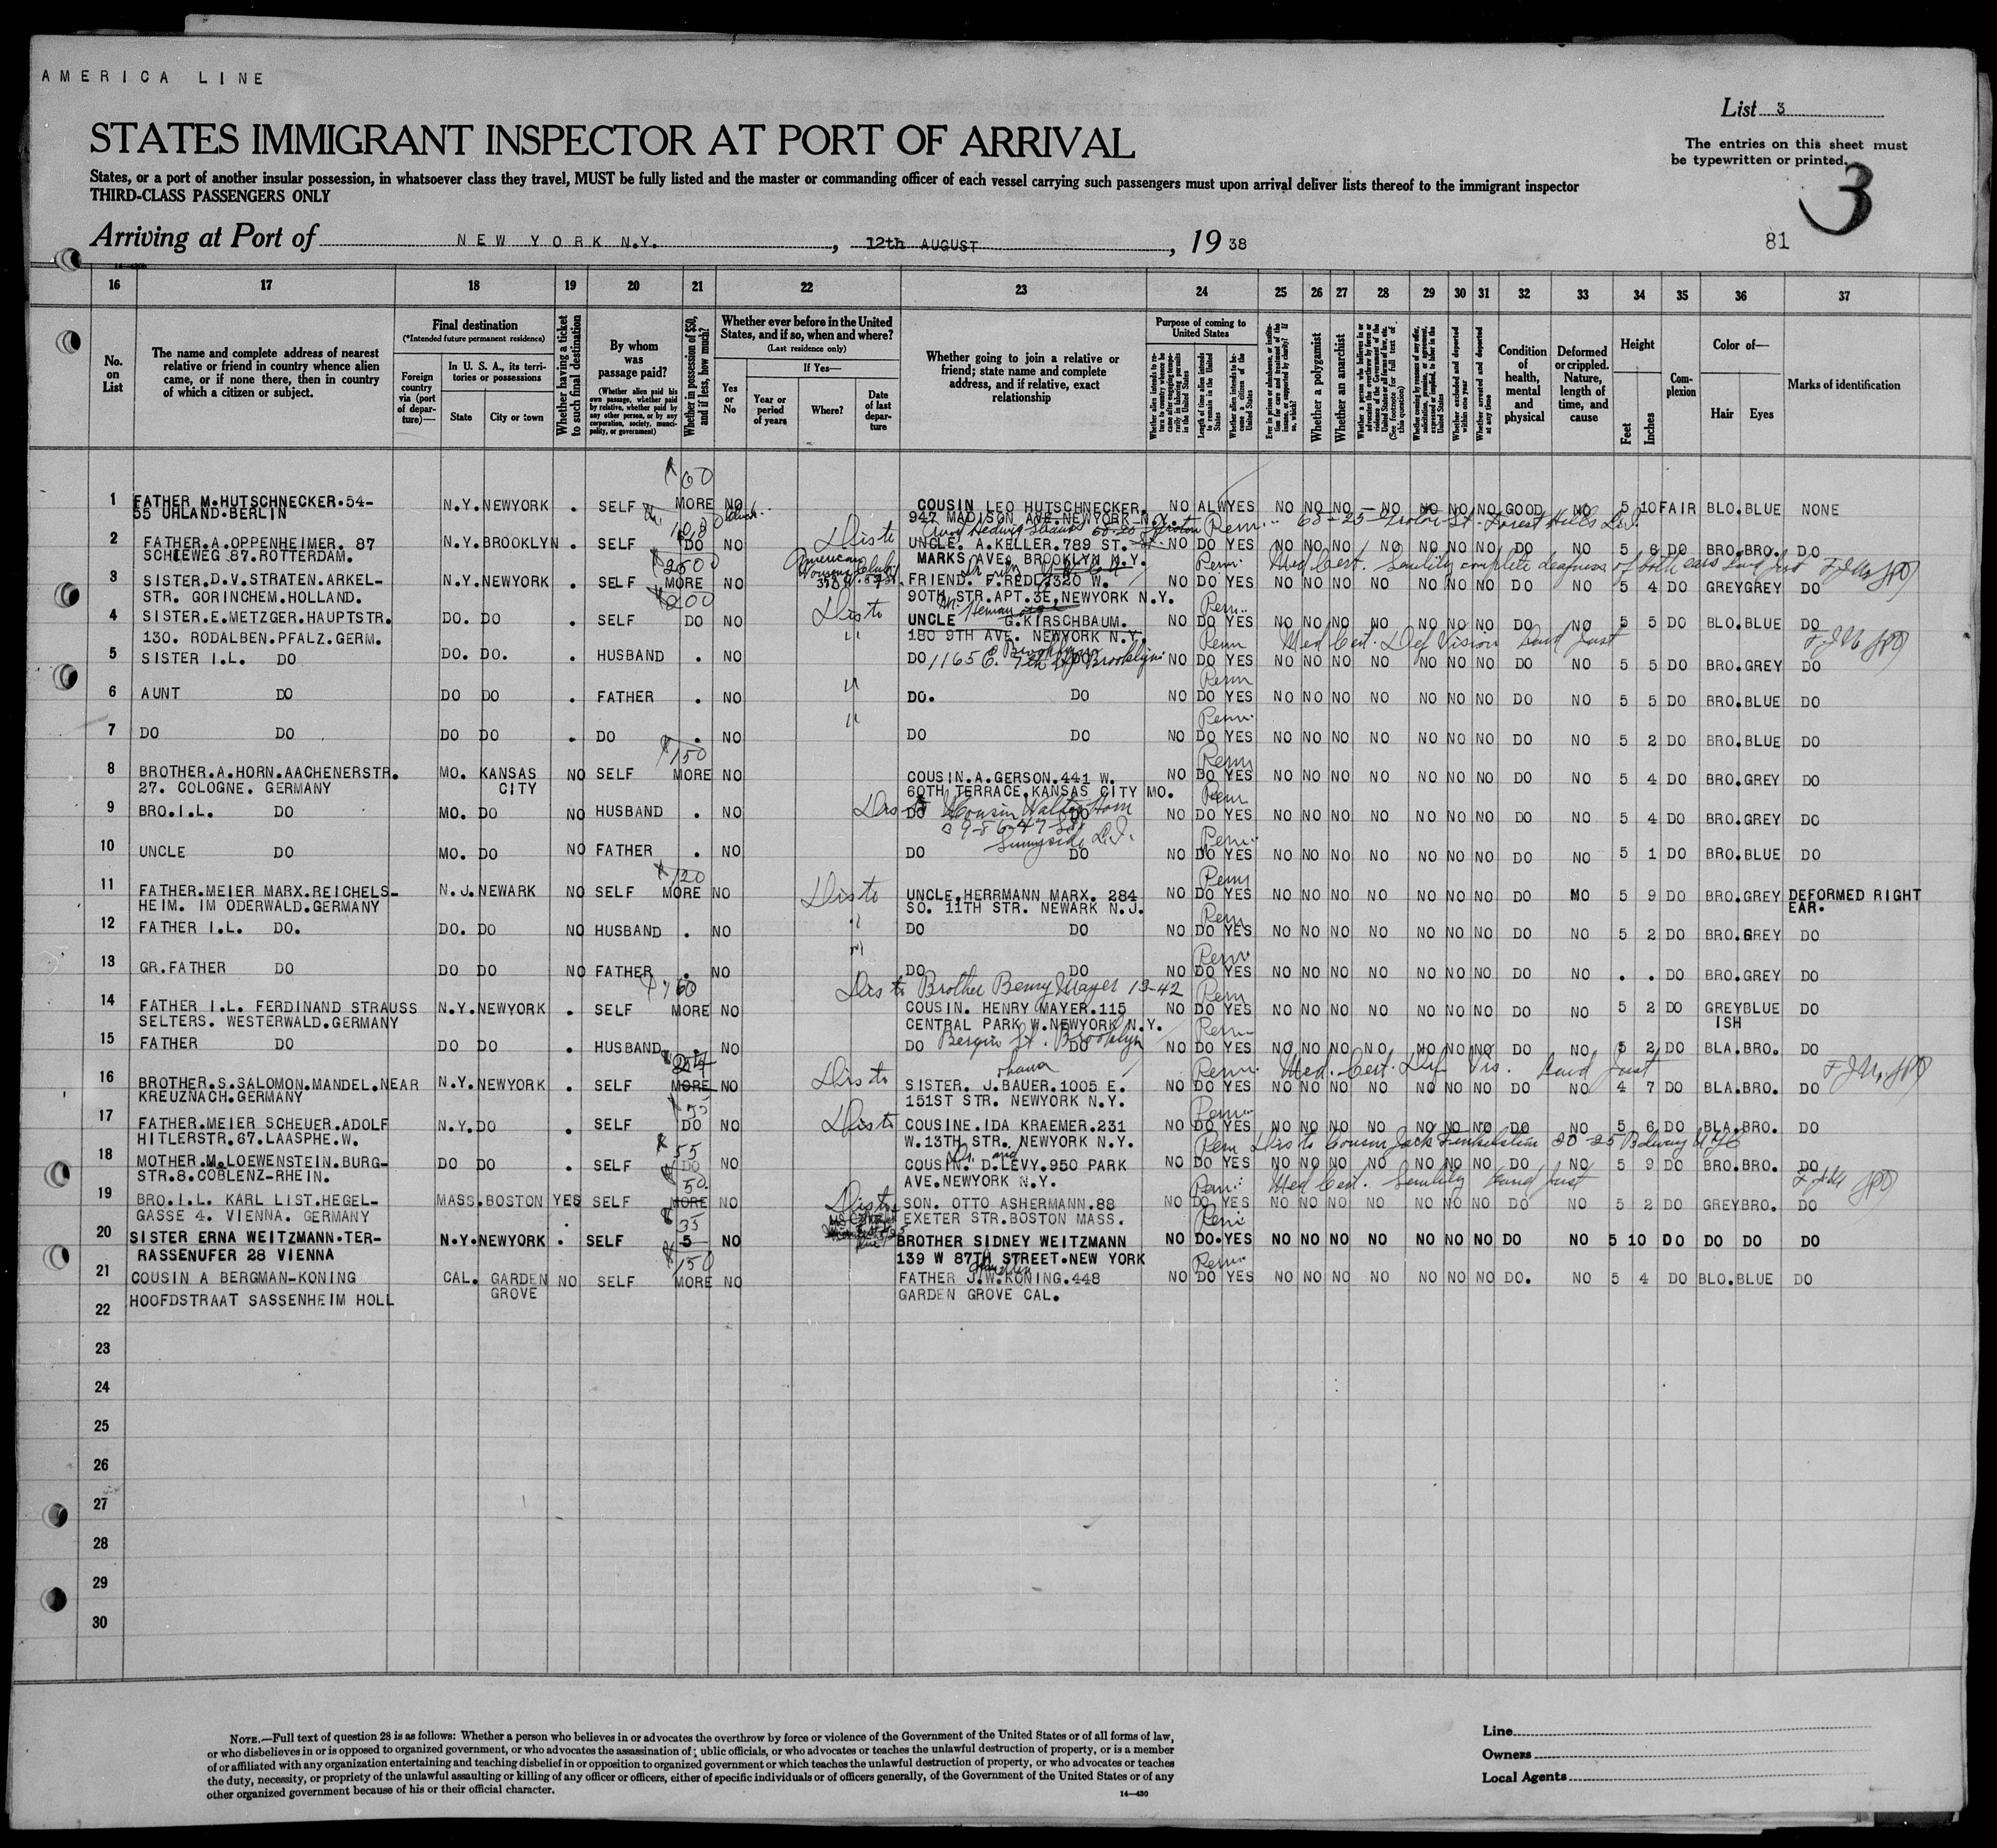 AMERICA LINE
List 3
STATES IMMIGRANT INSPECTOR AT PORT OF ARRIVAL
The entries on this sheet must be typewritten or printed.
States, or a port of another insular possession, in whatsoever class they travel, MUST be fully listed and the master or commanding officer of each vessel carrying such passengers must upon arrival deliver lists thereof to the immigrant inspector
THIRD-CLASS PASSENGERS ONLY
3
Arriving at Port of NEW YORK N.Y., 12th AUGUST, 19 38
81
16 17 18 19 20 21 22 23 24 25 26 27 28 29 30 31 32 33 34 35 36 37
No. on List
The name and complete address of nearest relative or friend in country whence alien came, or if none there, then in country of which a citizen or subject.
Final destination (*Intended future permanent residence)
Foreign country via (port of departure)—
In U. S. A., its territories or possessions
State
City or town
Whether having a ticket to such final destination
By whom was passage paid?
(Whether alien paid his own passage, whether paid by relative, whether paid by any other person, or by any corporation, society, municipality, or government)
Whether in possession of $50, and if less, how much?
Whether ever before in the United States, and if so, when and where?
(Last residence only)
Yes or No
If Yes—
Year or period of years
Where?
Date of last departure
Whether going to join a relative or friend; state name and complete address, and if relative, exact relationship
Purpose of coming to United States
Length of time alien intends to remain in the United States
Whether alien intends to become a citizen of the United States
Whether a polygamist
Whether an anarchist
Whether excluded and deported within one year
Whether arrested and deported at any time
Condition of health, mental and physical
Deformed or crippled. Nature, length of time, and cause
Height
Feet
Inches
Complexion
Color of—
Hair
Eyes
Marks of identification
60
1 FATHER M.HUTSCHNECKER.54- N.Y. NEWYORK . SELF MORE NO COUSIN LEO HUTSCHNECKER. NO ALW YES NO NO NO NO NO NO NO GOOD NO 5 10 FAIR BLO. BLUE NONE
55 UHLAND.BERLIN 947 MADISON AVE.NEWYORK N.Y.
Perm. 68-25 Groton St. Forest Hills L.I.
2 FATHER.A.OPPENHEIMER. 87 N.Y. BROOKLYN . SELF DO NO Dis to UNCLE. A.KELLER.789 ST. NO DO YES NO NO NO NO NO NO NO DO NO 5 6 DO BRO. BRO. DO
SCHIEWEG 87.ROTTERDAM. MARKS AVE. BROOKLYN N.Y.
2500 American Perm Med Cert. Senility complete deafness of both ears
3 SISTER.D.V.STRATEN.ARKEL- N.Y. NEWYORK . SELF MORE NO FRIEND. F.FREDL,2320 W. NO DO YES NO NO NO NO NO NO NO DO NO 5 4 DO GREY GREY DO
STR. GORINCHEM.HOLLAND. 90TH STR.APT.3E,NEWYORK N.Y.
200 Dis to Perm
4 SISTER.E.METZGER.HAUPTSTR. DO. DO . SELF DO NO UNCLE G.KIRSCHBAUM. NO DO YES NO NO NO NO NO NO NO DO NO 5 5 DO BLO. BLUE DO
130. RODALBEN.PFALZ.GERM. 180 9TH AVE. NEWYORK N.Y.
Perm Med Cert. Def Vision
5 SISTER I.L. DO DO. DO. . HUSBAND . NO DO 1165 E. 7th Brooklyn NO DO YES NO NO NO NO NO NO NO DO NO 5 5 DO BRO. GREY DO
Perm
6 AUNT DO DO DO . FATHER . NO DO. DO NO DO YES NO NO NO NO NO NO NO DO NO 5 5 DO BRO. BLUE DO
Perm
7 DO DO DO DO . DO . NO DO DO NO DO YES NO NO NO NO NO NO NO DO NO 5 2 DO BRO. BLUE DO
150 Perm
8 BROTHER.A.HORN.AACHENERSTR. MO. KANSAS CITY NO SELF MORE NO COUSIN.A.GERSON.441 W. NO DO YES NO NO NO NO NO NO NO DO NO 5 4 DO BRO. GREY DO
27. COLOGNE. GERMANY 60TH TERRACE.KANSAS CITY MO.
Perm
9 BRO.I.L. DO MO. DO NO HUSBAND . NO DO Cousin Walter Horn DO NO DO YES NO NO NO NO NO NO NO DO NO 5 4 DO BRO. GREY DO
Sunnyside L.I. Perm
10 UNCLE DO MO. DO NO FATHER . NO DO DO NO DO YES NO NO NO NO NO NO NO DO NO 5 1 DO BRO. BLUE DO
120 Perm
11 FATHER.MEIER MARX.REICHELS- N.J. NEWARK NO SELF MORE NO Dis to UNCLE.HERRMANN MARX. 284 NO DO YES NO NO NO NO NO NO NO DO NO 5 9 DO BRO. GREY DEFORMED RIGHT EAR.
HEIM. IM ODERWALD.GERMANY SO. 11TH STR. NEWARK N.J.
Perm
12 FATHER I.L. DO. DO. DO NO HUSBAND . NO DO DO NO DO YES NO NO NO NO NO NO NO DO NO 5 2 DO BRO. GREY DO
Perm
13 GR.FATHER DO DO DO NO FATHER . NO DO DO NO DO YES NO NO NO NO NO NO NO DO NO . . DO BRO. GREY DO
160 Dis to Brother Benny Mayer 13-42 Perm
14 FATHER I.L. FERDINAND STRAUSS N.Y. NEWYORK . SELF MORE NO COUSIN. HENRY MAYER.115 NO DO YES NO NO NO NO NO NO NO DO NO 5 2 DO GREYISH BLUE DO
SELTERS. WESTERWALD.GERMANY CENTRAL PARK W.NEWYORK N.Y.
Perm
15 FATHER DO DO DO . HUSBAND . NO DO Bergen St. Brooklyn DO NO DO YES NO NO NO NO NO NO NO DO NO 5 2 DO BLA. BRO. DO
Perm Med. Cert. Def Vis.
16 BROTHER.S.SALOMON.MANDEL.NEAR N.Y. NEWYORK . SELF MORE NO Dis to SISTER. J.BAUER.1005 E. NO DO YES NO NO NO NO NO NO NO DO NO 4 7 DO BLA. BRO. DO
KREUZNACH.GERMANY 151ST STR. NEWYORK N.Y.
55 Perm
17 FATHER.MEIER SCHEUER.ADOLF N.Y. DO . SELF DO NO Dis to COUSINE.IDA KRAEMER.231 NO DO YES NO NO NO NO NO NO NO DO NO 5 6 DO BLA. BRO. DO
HITLERSTR.67.LAASPHE.W. W.13TH STR. NEWYORK N.Y.
55 Perm Dis to Cousin Jack
18 MOTHER.M.LOEWENSTEIN.BURG- DO DO . SELF DO NO COUSIN. D.LEVY.950 PARK NO DO YES NO NO NO NO NO NO NO DO NO 5 9 DO BRO. BRO. DO
STR.8.COBLENZ-RHEIN. AVE.NEWYORK N.Y.
50 Perm Med Cert. Senility
19 BRO.I.L. KARL LIST.HEGEL- MASS. BOSTON YES SELF MORE NO Dis to SON. OTTO ASHERMANN.88 NO DO YES NO NO NO NO NO NO NO DO NO 5 2 DO GREY BRO. DO
GASSE 4. VIENNA. GERMANY EXETER STR.BOSTON MASS.
35 Perm
20 SISTER ERNA WEITZMANN.TER- N.Y. NEWYORK . SELF 5 NO BROTHER SIDNEY WEITZMANN NO DO. YES NO NO NO NO NO NO NO DO NO 5 10 DO DO DO DO
RASSENUFER 28 VIENNA 139 W 87TH STREET.NEW YORK
150 Perm
21 COUSIN A BERGMAN-KONING CAL. GARDEN GROVE NO SELF MORE NO FATHER J.W.KONING.448 NO DO YES NO NO NO NO NO NO NO DO. NO 5 4 DO BLO. BLUE DO
HOOFDSTRAAT SASSENHEIM HOLL GARDEN GROVE CAL.
22
23
24
25
26
27
28
29
30
NOTE.—Full text of question 28 is as follows: Whether a person who believes in or advocates the overthrow by force or violence of the Government of the United States or of all forms of law,
or who disbelieves in or is opposed to organized government, or who advocates the assassination of ublic officials, or who advocates or teaches the unlawful destruction of property, or is a member
of or affiliated with any organization entertaining and teaching disbelief in or opposition to organized government or which teaches the unlawful destruction of property, or who advocates or teaches
the duty, necessity, or propriety of the unlawful assaulting or killing of any officer or officers, either of specific individuals or of officers generally, of the Government of the United States or of any
other organized government because of his or their official character.
14—430
Line
Owners
Local Agents